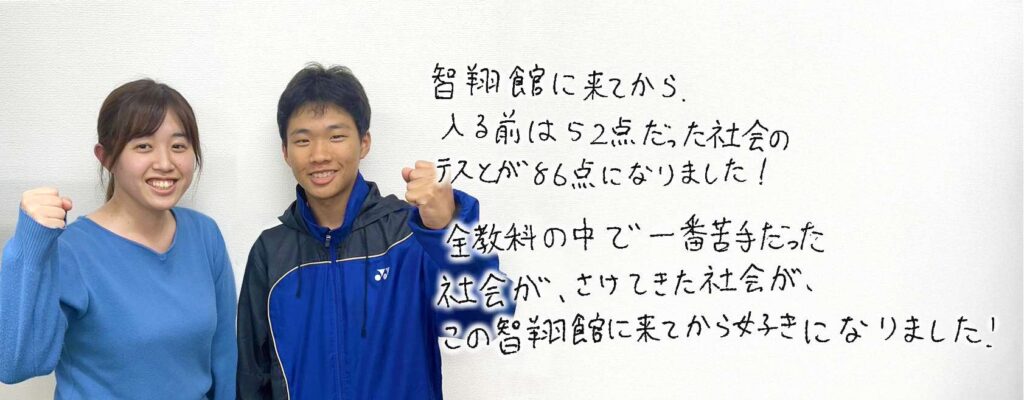 智翔館に来てから.
入る前は52点だった社会の
テストが86点になりました!
全教科の中で一番苦手だった
社会が、さけてきた社会が、
この智翔館に来てから好きになりました!
YONEX